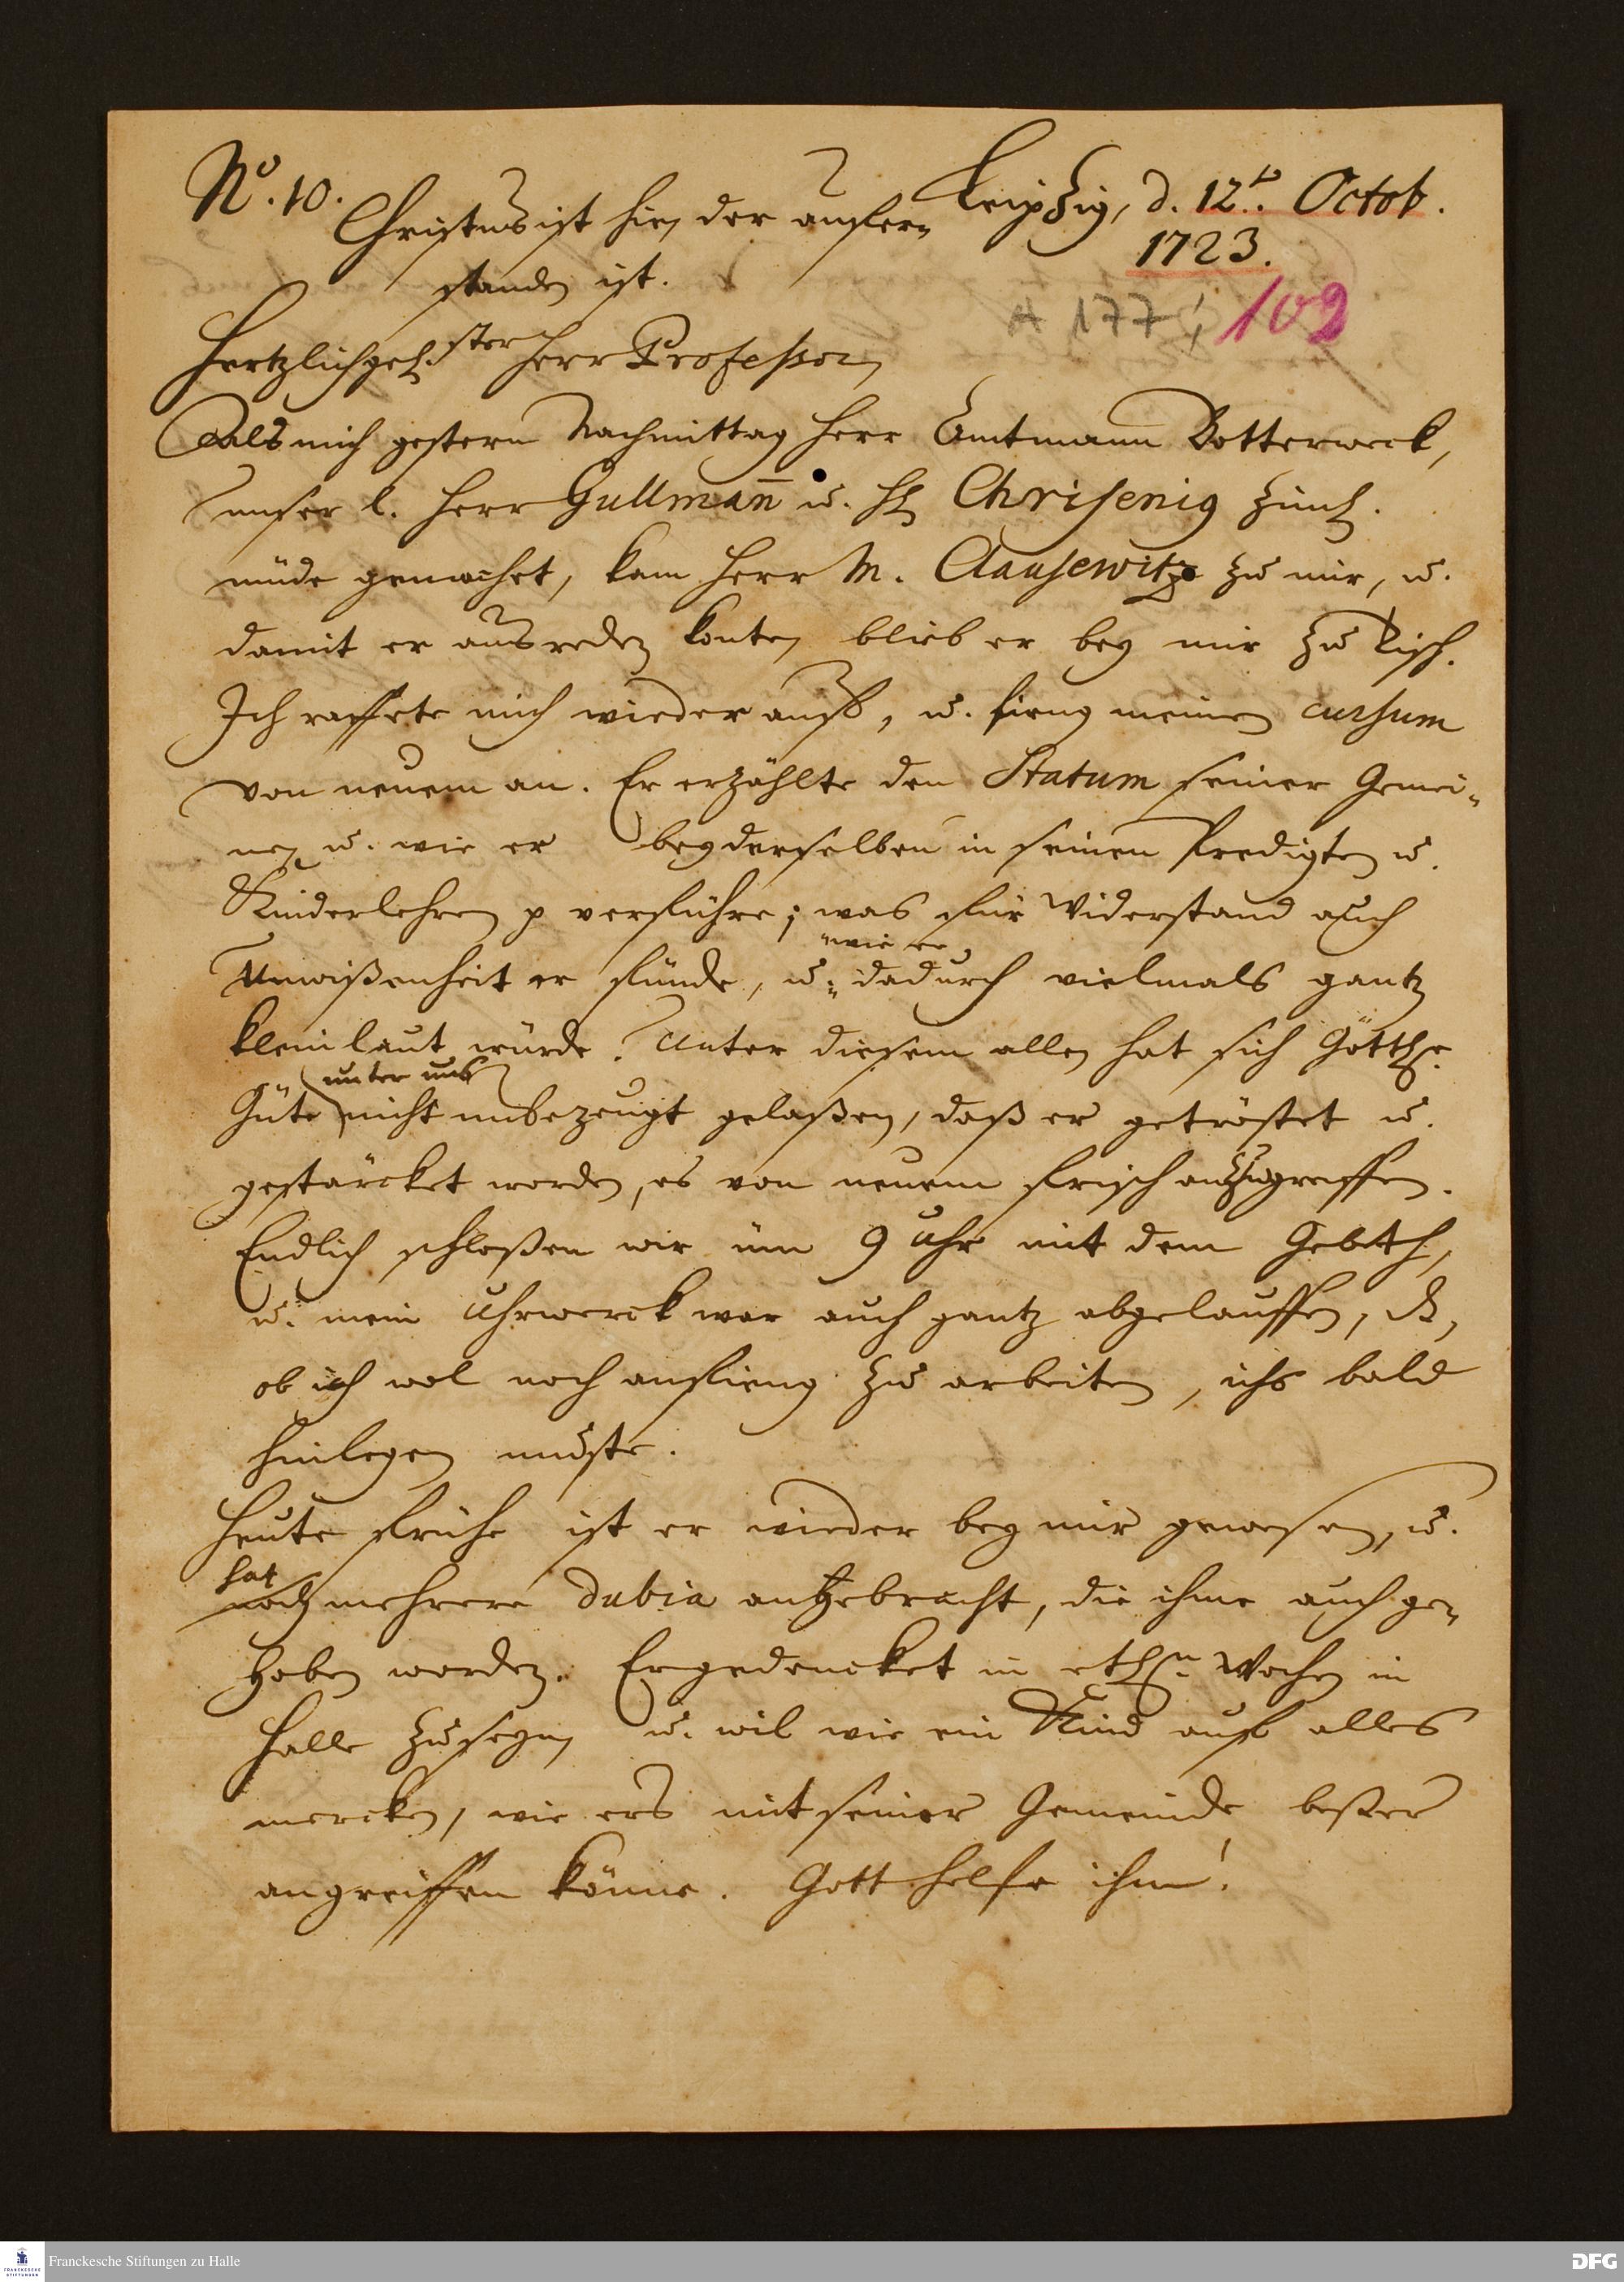 No. 10.
Leipzig, d. 12t. Octob.
1723.
Christus ist hie, der aufer-
standen ist.
A 177
109
Hertzlichgel. ster Herr Professor,
Als mich gestern Nachmittag Herr Amtmann Botterweck,
unser l. Herr Gullman̄ u. H. Chrisenig ziml.
müde gemachet, kam Herr M. Clausewitz zu mir, u.
damit er ausreden konte, blieb er bey mir zu Tisch.
Ich raffete mich wieder auff, u. fieng meinen cursum
von neuem an. Er erzählte den Statum seiner Gemei-
ne, u. wie er bey derselben in seinen Predigten u.
Kinderlehren p verführe; was für Widerstand auch
wie er
Unwißenheit er fünde, u. dadurch vielmals gantz
kleinlaut würde. Unter diesem allen hat sich Göttl.
unter uns
Güte nicht unbezeugt gelaßen, daß er getröstet u.
gestärcket worden, es von neuem frisch anzugreiffen.
Endlich schloßen wir üm 9 Uhr mit dem Gebeth,
u. mein Uhrwerck war auch gantz abgelauffen, ds,
ob ich wol noch anfieng zu arbeiten, ichs bald
hinlegen muste.
Heute frühe ist er wieder bey mir gewesen, u.
hat
noch mehrere dubia angebracht, die ihme auch ge-
hoben worden. Er gedencket in etl. Wochen in
Halle zu seyn, u. wil wie ein Kind auf alles
mercken, wie ers mit seiner Gemeinde beßer
angreiffen könne. Gott helfe ihm!
Franckesche Stiftungen zu Halle
DFG